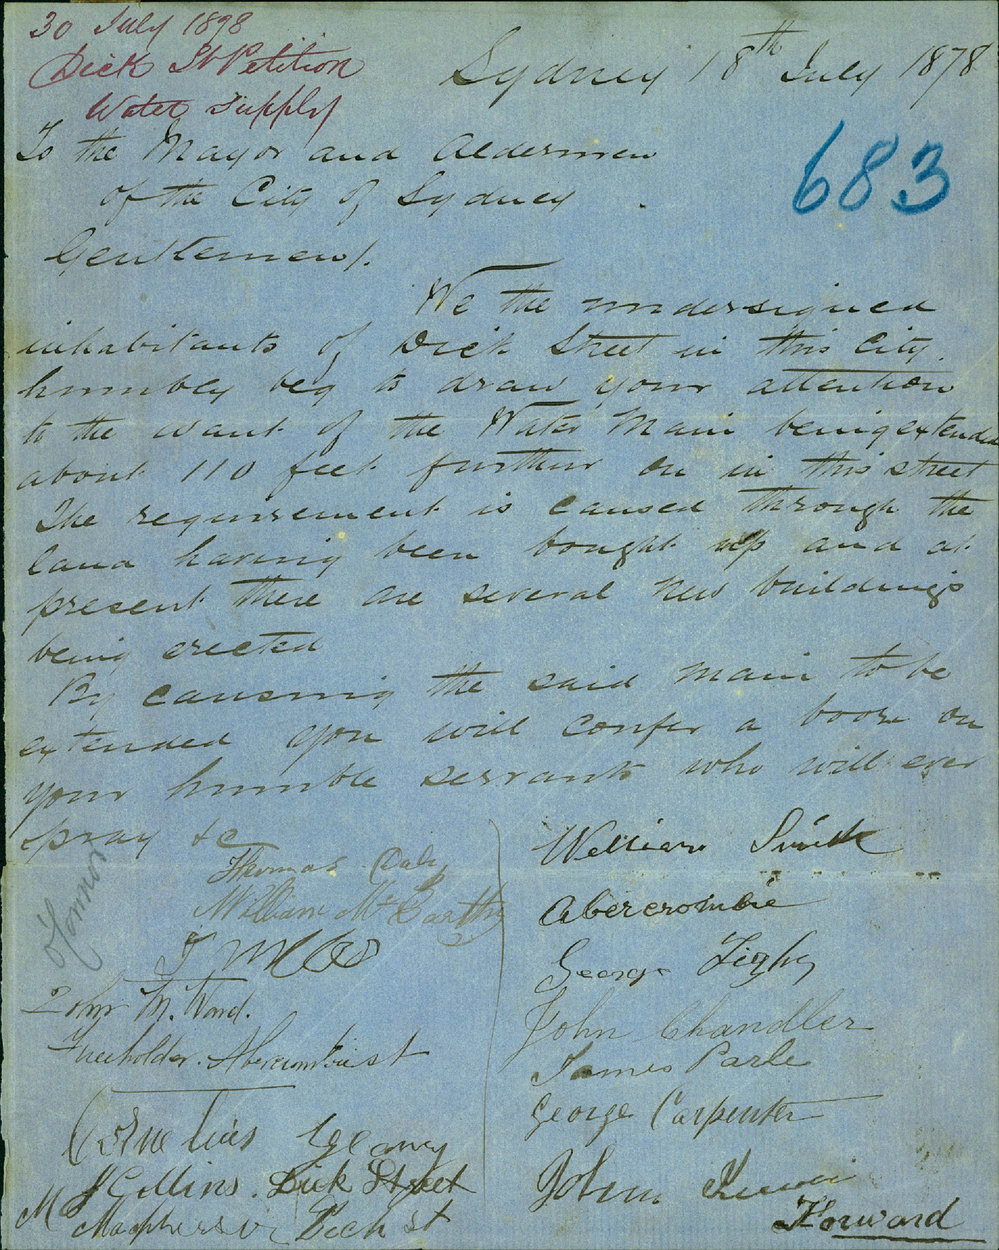 30 July 1878
Dick St Petition
Water Supply
Sydney 18th July 1878
683
To the Mayor and Aldermen
of the City of Sydney
Gentlemen,
We the undersigned
inhabitants of Dick Street in this City.
humbley beg to draw your attention
to the want of the Water Main being extended
about 110 feet further on in this street
The requirement is caused through the
land having been bought up and at
present there are several new buildings
being erected
By causing the said main to be
extended you will confer a boon on
your humble servants who will ever
pray &c
O'Connor
Thomas Daly
William McCarthy
John M. Ward.
Freeholder. Abercrombie st
Cornelius Geaney
J Collins. Dick Street
Macpherson Dick St
William Smith
Abercrombie
George Tighy
John Chandler
James Parle
George Carpenter
John
Forward